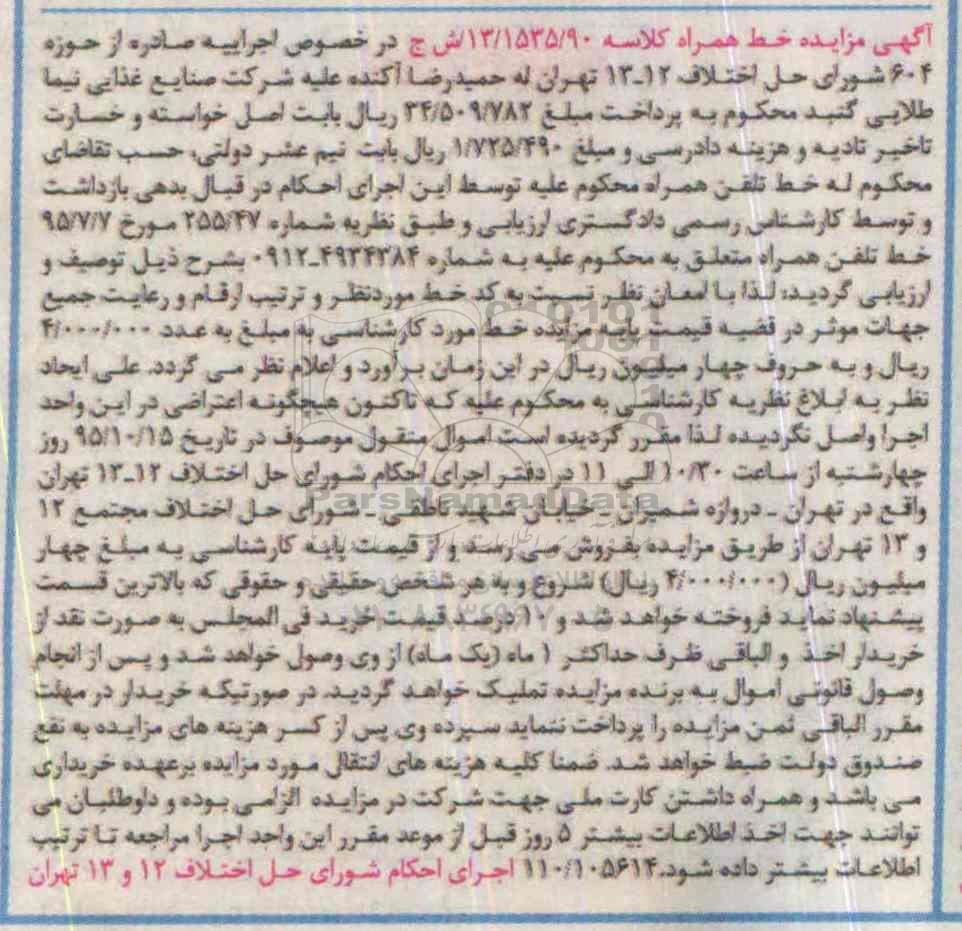 آگهی مزایده خط همراه کلاسه ۱۳/۱۵۳۵/۹۰/ش ج در خصوص اجراییه صادره از حوزه
۶۰۴ شورای حل اختلاف ۱۲ـ۱۳ تهران له حمیدرضا آکنده علیه شرکت صنایع غذایی نیما
طلایی گنبد محکوم به پرداخت مبلغ ۳۴/۵۰۹/۷۸۲ ریال بابت اصل خواسته و خسارت
تاخیر تادیه و هزینه دادرسی و مبلغ ۱/۷۲۵/۴۹۰ ریال بابت نیم عشر دولتی، حسب تقاضای
محکوم له خط تلفن همراه محکوم علیه توسط این اجرای احکام در قبال بدهی بازداشت
و توسط کارشناس رسمی دادگستری ارزیابی و طبق نظریه شماره ۲۵۵/۴۷ مورخ ۹۵/۷/۷
خط تلفن همراه متعلق به محکوم علیه به شماره ۴۹۳۴۳۸۴ـ۰۹۱۲ بشرح ذیل توصیف و
ارزیابی گردید: لذا با امعان نظر نسبت به کد خط موردنظر و ترتیب ارقام و رعایت جمیع
جهات موثر در قضیه قیمت پایه مزایده خط مورد کارشناسی به مبلغ به عدد ۴/۰۰۰/۰۰۰
ریال و به حروف چهار میلیون ریال در این زمان برآورد و اعلام نظر می گردد. علی ایحاد
نظر به ابلاغ نظریه کارشناسی به محکوم علیه که تاکنون هیچگونه اعتراضی در این واحد
اجرا واصل نگردیده لذا مقرر گردیده است اموال منقول موصوف در تاریخ ۹۵/۱۰/۱۵ روز
چهارشنبه از ساعت ۱۰/۳۰ الی ۱۱ در دفتر اجرای احکام شورای حل اختلاف ۱۲ـ۱۳ تهران
واقع در تهران ـ دروازه شمیران ـ خیابان شهید ناطقی ـ شورای حل اختلاف مجتمع ۱۲
و ۱۳ تهران از طریق مزایده بفروش می رسد و از قیمت پایه کارشناسی به مبلغ چهار
میلیون ریال (۴/۰۰۰/۰۰۰ ریال) شروع و به هر شخص حقیقی و حقوقی که بالاترین قسمت
پیشنهاد نماید فروخته خواهد شد و ۱۰ درصد قیمت خرید فی المجلس به صورت نقد از
خریدار اخذ و الباقی ظرف حداکثر ۱ ماه (یک ماه) از وی وصول خواهد شد و پس از انجام
وصول قانونی اموال به برنده مزایده تملیک خواهد گردید. در صورتیکه خریدار در مهلت
مقرر الباقی ثمن مزایده را پرداخت ننماید سپرده وی پس از کسر هزینه های مزایده به نفع
صندوق دولت ضبط خواهد شد. ضمنا کلیه هزینه های انتقال مورد مزایده برعهده خریداری
می باشد و همراه داشتن کارت ملی جهت شرکت در مزایده الزامی بوده و داوطلبان می
توانند جهت اخذ اطلاعات بیشتر ۵ روز قبل از موعد مقرر این واحد اجرا مراجعه تا ترتیب
اطلاعات بیشتر داده شود.۱۱۰/۱۰۵۶۱۴ اجرای احکام شورای حل اختلاف ۱۲ و ۱۳ تهران
ParsNamadData